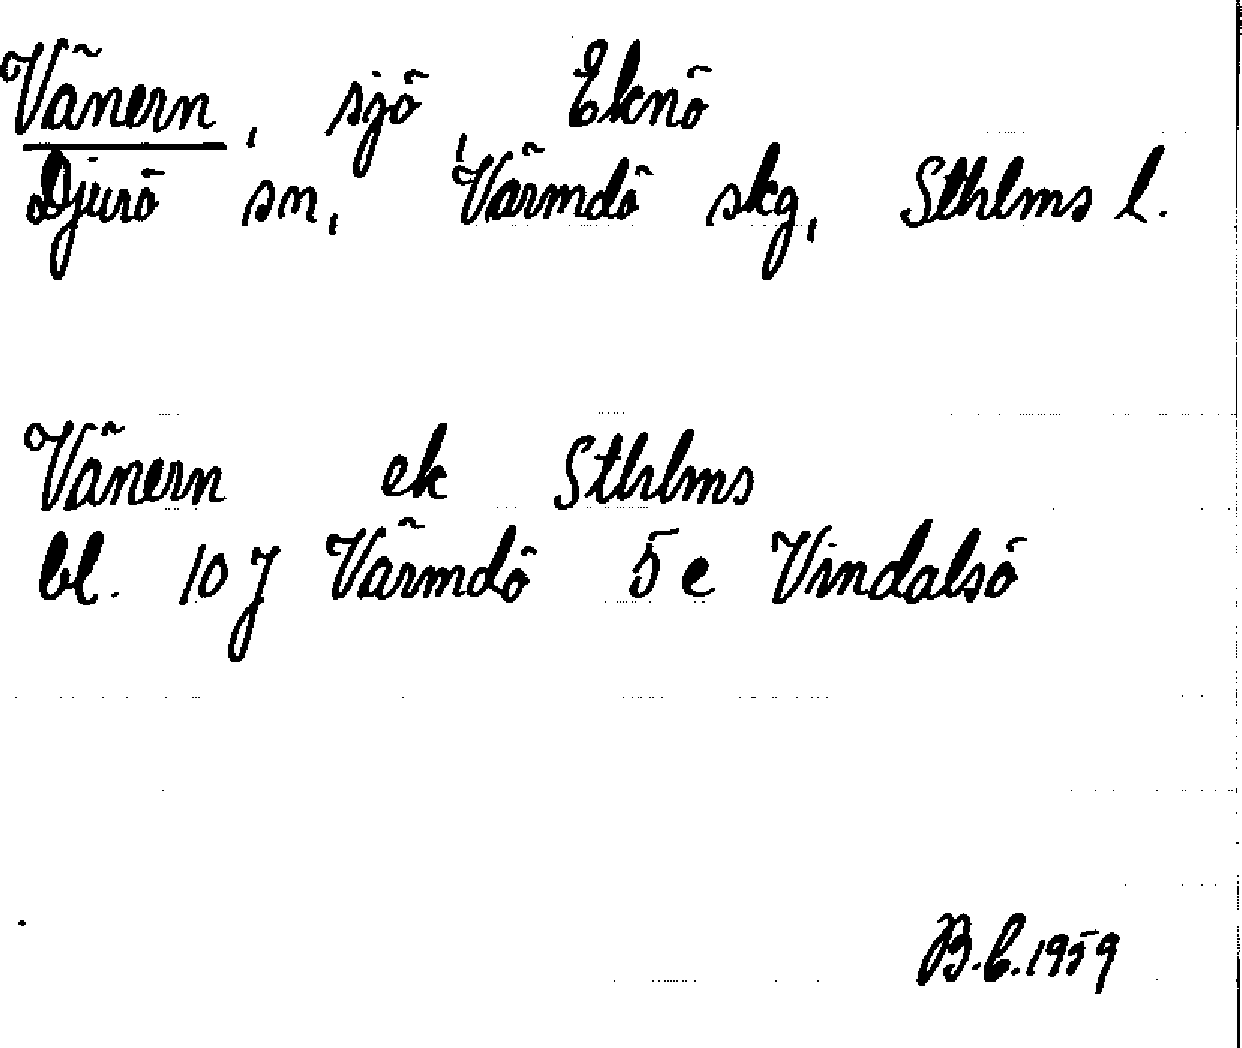 Vänern, sjö Eknö
Djurö sn, Värmdö skg, Sthlms l.
Vänern ek Sthlms
bl. 10 J Värmdö 5 e Vindalsö
B.C. 1959